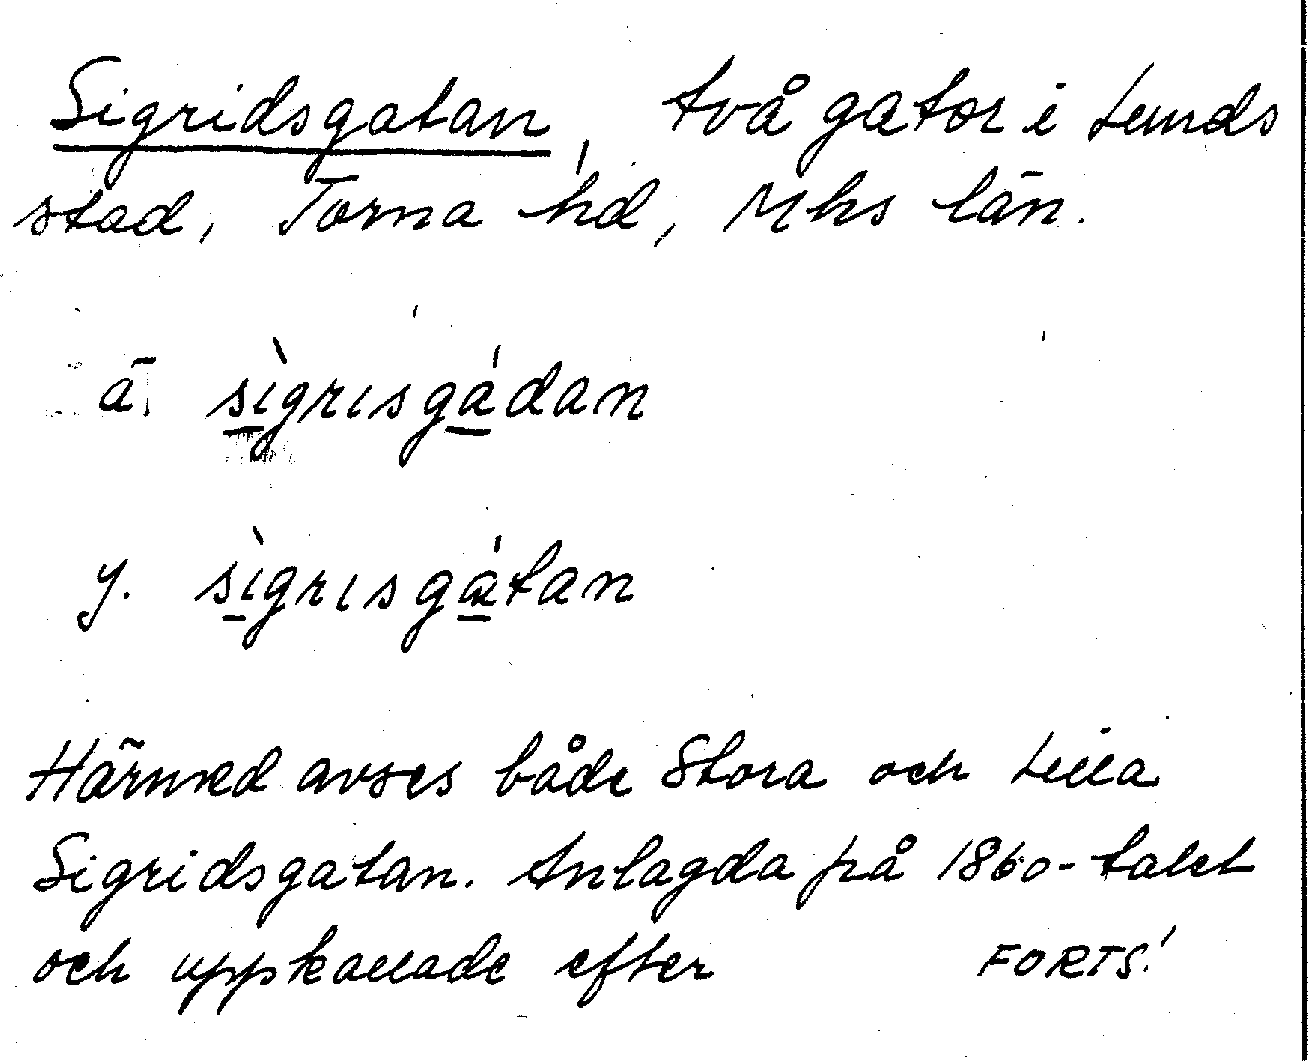 Sigridsgatan, två gator i Lunds
stad, Torna hd, Mhs län.
ä. sìgrisgádan
y. sìgrisgátan
Härmed avses både Stora och Lilla
Sigridsgatan. Anlagda på 1860-talet
och uppkallade efter FORTS!